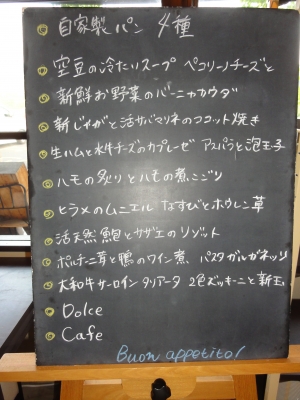 ◎ 自家製パン 4種
◎ 空豆の冷たいスープ ペコリーノチーズと
◎ 新鮮お野菜のバーニャカウダ
◎ 新じゃがと活サバマリネのココット焼き
◎ 生ハムと水牛チーズのカプレーゼ アスパラと泡玉子
◎ ハモの炙りとハモの煮こごり
◎ ヒラメのムニエル なすびとホウレン草
◎ 活天然鮑とサザエのリゾット
◎ ポルチーニ茸と鴨のワイン煮、パスタガルガネッリ
◎ 大和牛サーロインタリアータ 2色ズッキーニと新玉
◎ Dolce
◎ Cafe
Buon appetito!